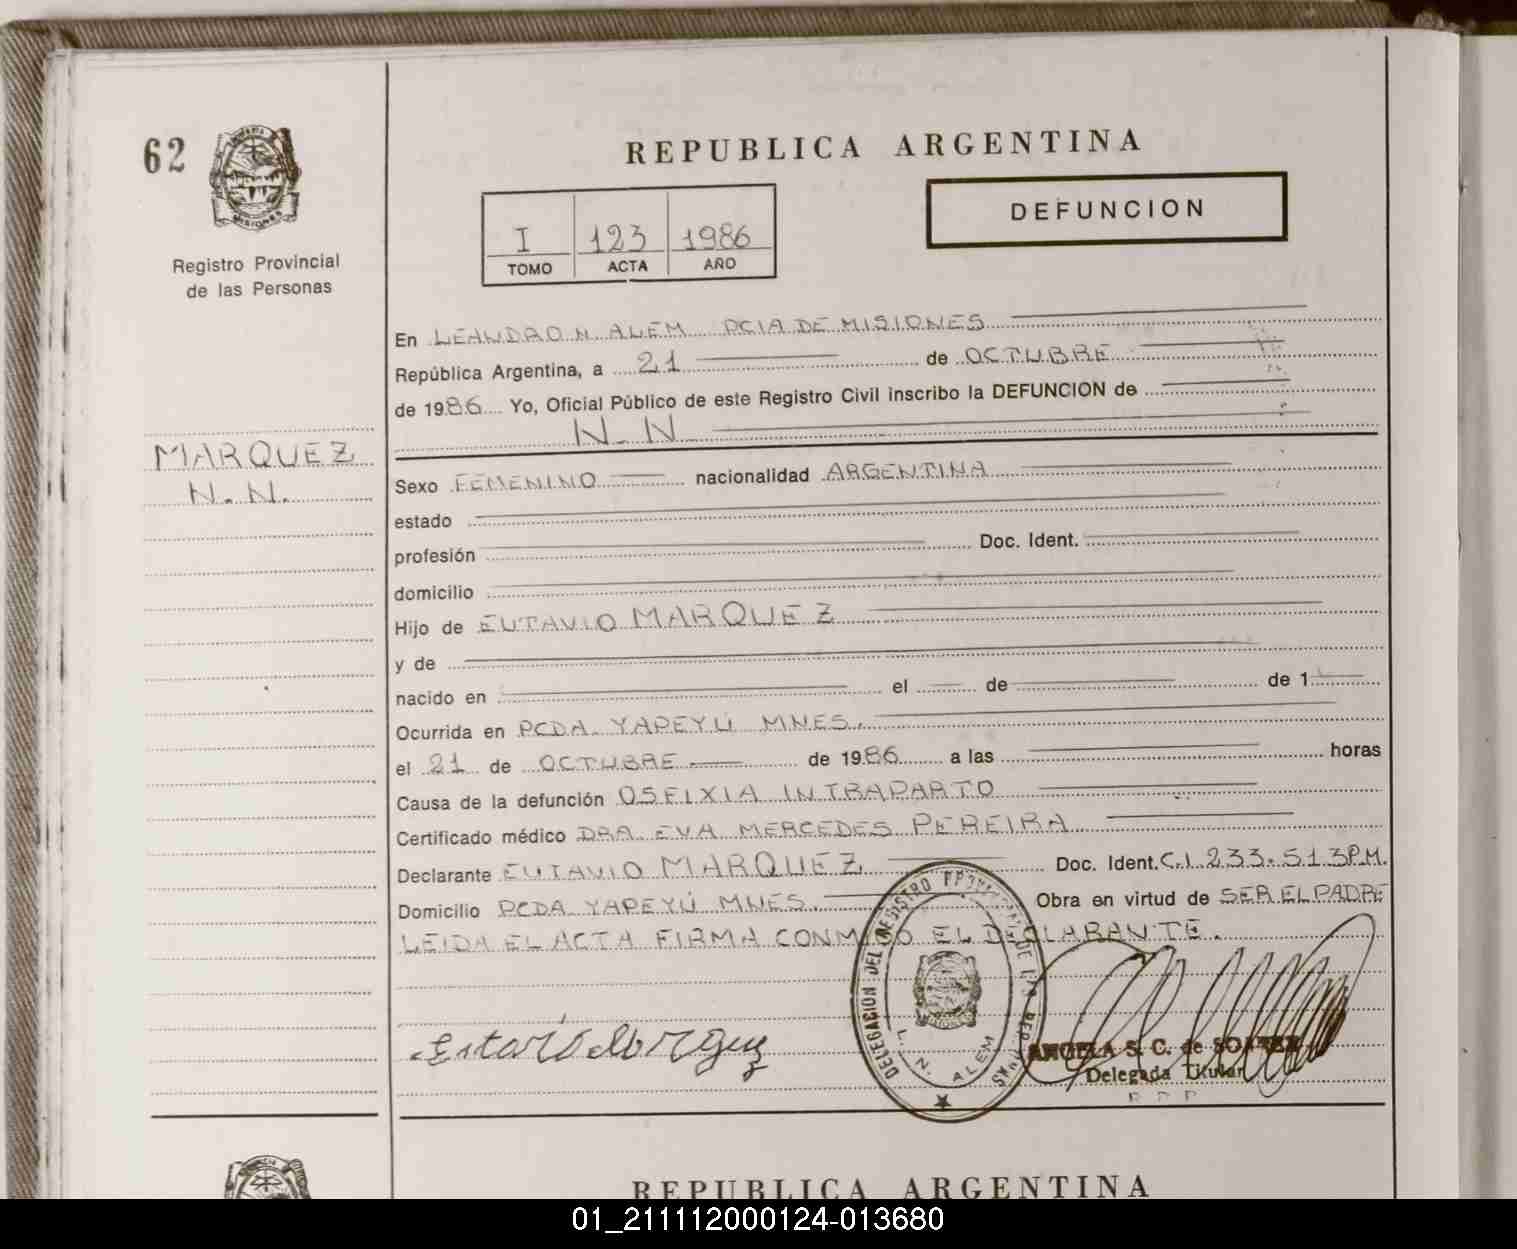 62
REPUBLICA ARGENTINA
MISIONES
DEFUNCION
I 123 1986
TOMO ACTA AÑO
Registro Provincial
de las Personas
En LEANDRO N. ALEM PCIA DE MISIONES
República Argentina, a 21 de OCTUBRE
de 1986 Yo, Oficial Público de este Registro Civil inscribo la DEFUNCION de
N. N.
MARQUEZ
N. N.
Sexo FEMENINO nacionalidad ARGENTINA
estado
profesión Doc. Ident.
domicilio
Hijo de EUTAVIO MARQUEZ
y de
nacido en el de de 1
Ocurrida en PCDA. YAPEYÚ MNES.
el 21 de OCTUBRE de 1986 a las horas
Causa de la defunción OSFIXIA INTRAPARTO
Certificado médico DRA. EVA MERCEDES PEREIRA
Declarante EUTAVIO MARQUEZ Doc. Ident. C.I. 233.513 P.M.
Domicilio PCDA YAPEYÚ MNES. Obra en virtud de SER EL PADRE
LEIDA EL ACTA FIRMA CONMIGO EL DECLARANTE.
DELEGACION DEL REGISTRO PROVINCIAL DE LAS PERSONAS
L. N. ALEM
ANGELA S. C. de
Delegada Titular
REPUBLICA ARGENTINA
01_211112000124-013680